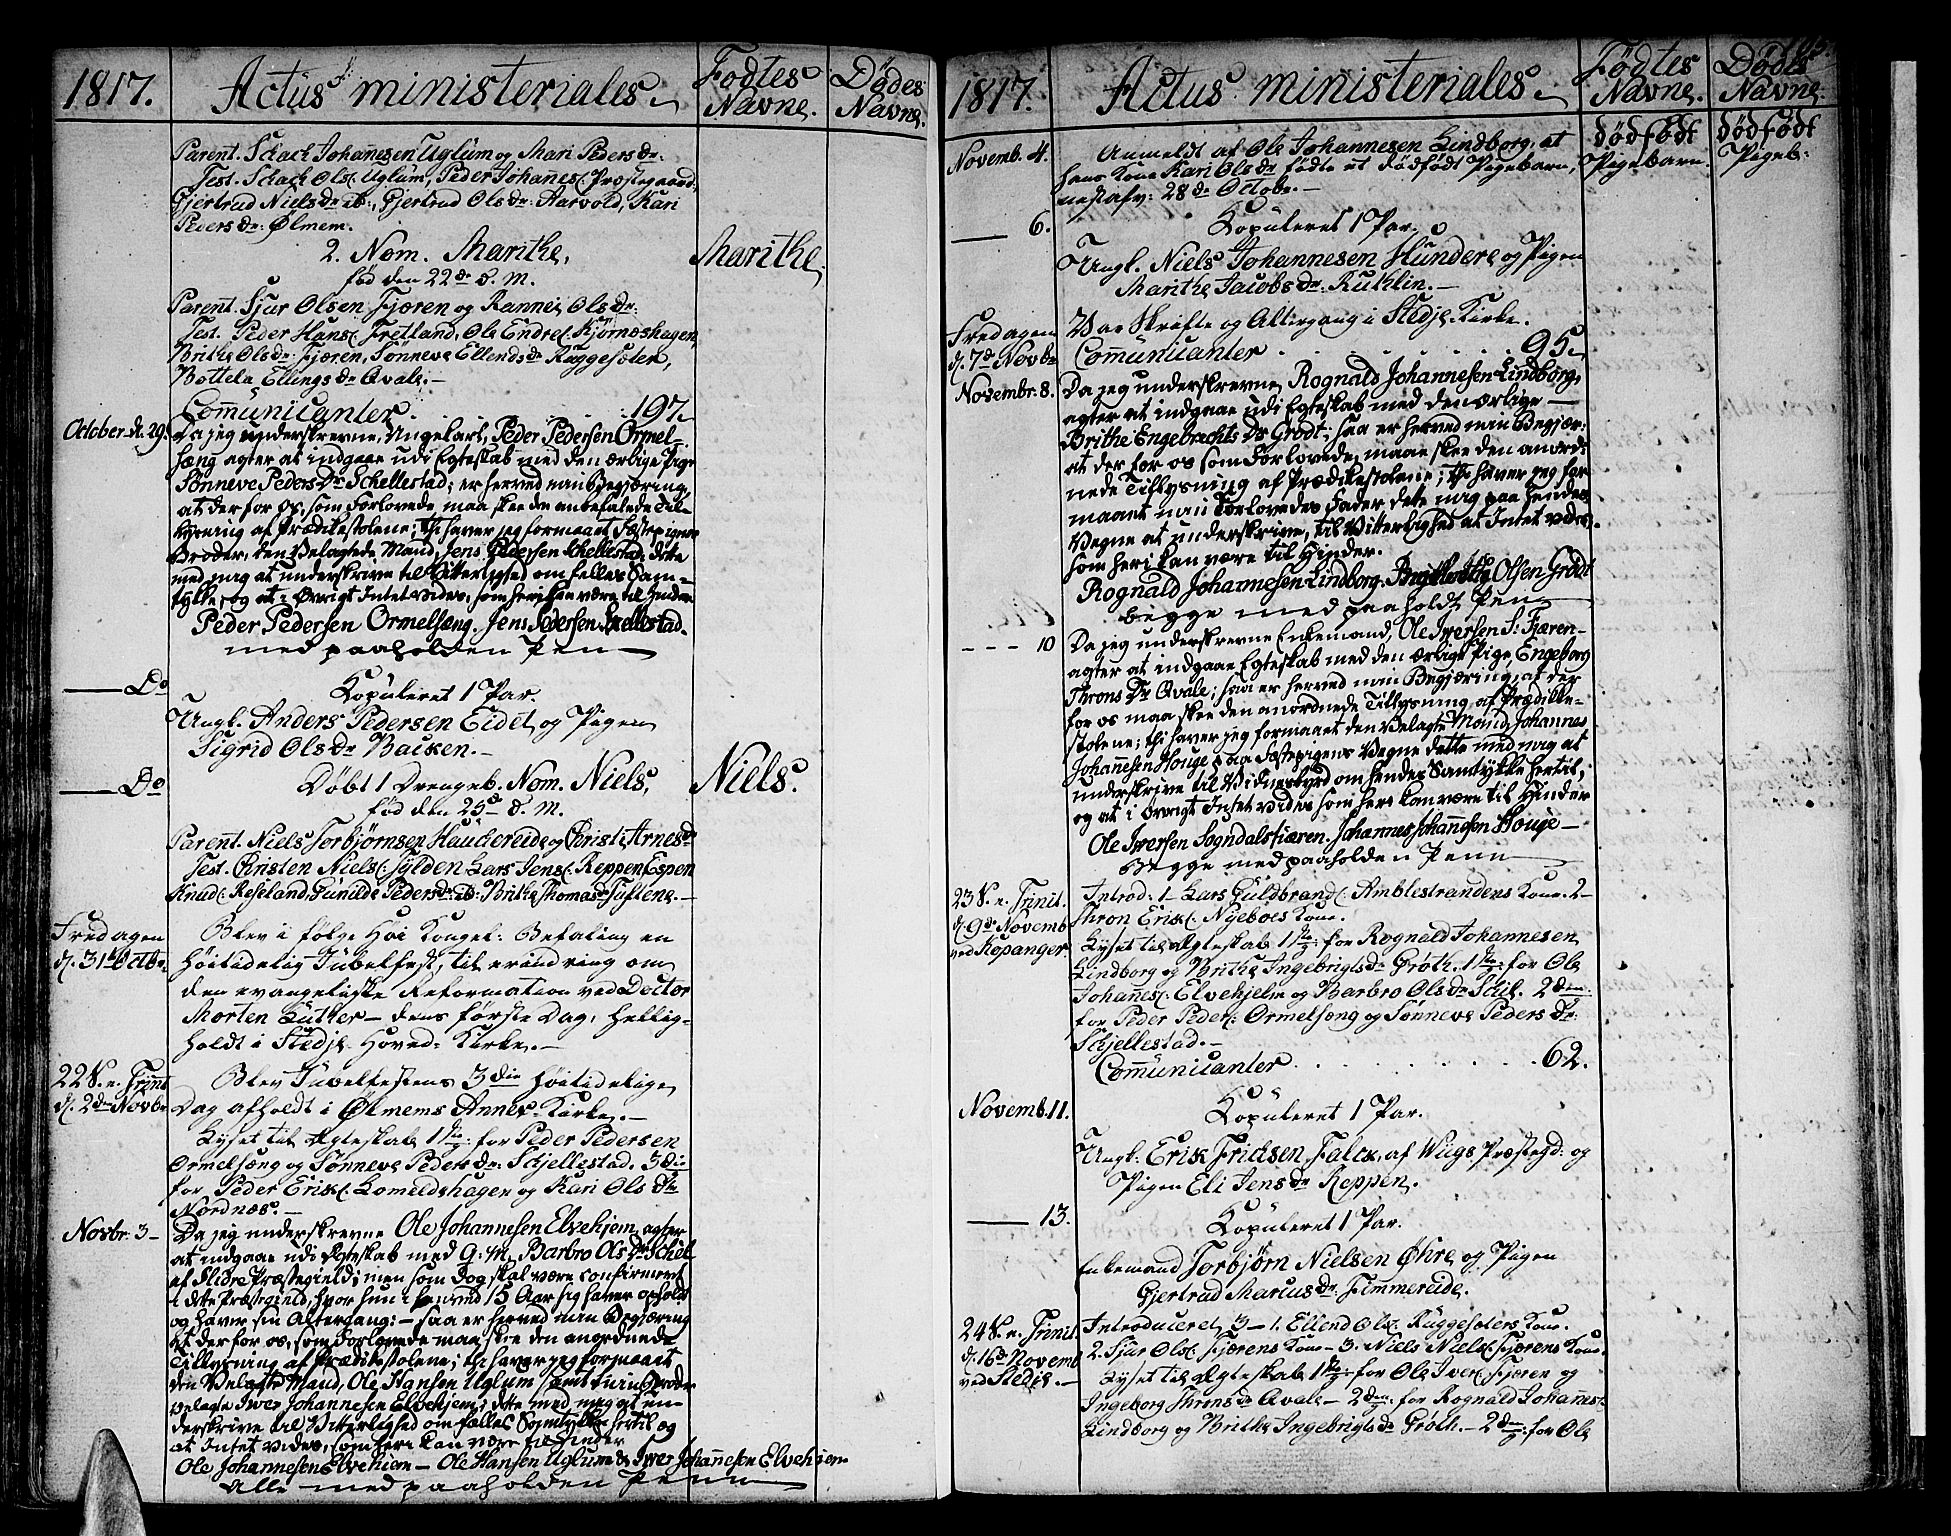 1817.
Actus ministeriales
Fødtes
Navne.
Dødes
Navne.
Parent. Schack Johannesen Uglum og Mari Peders dr:
Test. Schack Ols: Uglum, Peder Johanes: Præstegaard,
Gjertrud Niels dr ib:, Gjertrud Ols dr: Aarvold, Kari
Peders dr: Ølmem.
2. Nom. Marithe,
Marithe.
fød den 22de d. M.
Parent. Sjur Olsen Fjæren og Rannei Ols dr:
Test. Peder Hans: Fretland, Ole Endre: Kjørnæshagen,
Brithe Ols dr: Fjæren, Sønneve Ellends dr Ruggesæter,
Bottela Ellings dr Qvale.
Communicanter . . . 197.
October d. 29.
Da jeg underskrevne, Ungekarl, Peder Pedersen Ormel-
sæng agter at indgaae udi Egteskab med den ærlige Pige
Sønneve Peders Dr Schellestad; er herved min Begjæring,
at der for os, som Forlovede, maa skee den anbefalede Til-
lysning af Prædikestolene; thi haver jeg formaaet Fæstepigens
Broder, den Velagtede Mand, Jens Pedersen Schellestad, dette
med mig at underskrive til Vitterlighed om felles Sam-
tykke, og at i Øvrigt Intet vides, som heri kan være til Hinder
Peder Pedersen Ormelsæng. Jens Pedersen Skellestad.
med paaholden Pen
Do
Kopuleret 1 Par.
Ungk. Anders Pedersen Eidet og Pigen
Sigrid Ols dr Backen.
Do
Døbt 1 Drengeb. Nom. Niels,
Niels.
fød den 25de d. M.
Parent. Niels Torbjørnsen Haukereide og Christi Arnes dr
Test. Christen Niels: Fylden Lars Jens: Reppen Espen
Knud: Røseland, Gunilde Peders dr ib: Brithe Thomas dr Tuftene.
Fredagen
d. 31te Octbr.
Blev i følge Høi Kongel: Befaling en
høitidelig Jubelfest, til erindring om
den evangeliske Reformation ved Doctor
Morten Luther — dens første Dag, hellig-
holdt i Stedje Hoved-Kirke.
22 S. e. Trinit
d. 2den Novbr.
Blev Jubelfestens 3die høitidelige
Dag afholdt i Ølmems Annex-Kirke.
Lyset til Ægteskab 1ste: for Peder Pedersen
Ormelsæng og Sønneve Peders dr: Schjellestad. 3die
for Peder Erik: Lomeldshagen og Kari Ols dr
Nordnæs.
Novbr. 3
Da jeg underskrevne Ole Johannesen Elvehjem agter
at indgaae udi Ægteskab med G: M. Barbro Ols Dr Schel
af Slidre Præstegield; men som dog skal være confirmeret
i dette Præstegield, hvor hun i henved 15 Aar sig haver opholdt
og haver sin Altergang: — saa er herved min Begjæring
at der for os, som Forlovede maa skee den anordnede
Tillysning af Prædikestolene; thi haver jeg formaaet
den Velagte Mand, Ole Hansen Uglum samt min Broder
velagte Iwer Johannesen Elvehjem; dette med mig at un-
derskrive til Vitterlighed om fælles Samtykke hertil og
at Intet vides, som heri kan være til Hinder
Ole Johannesen Elvehiem — Ole Hansen Uglum & Iwer Johannesen Elvehiem
Alle med paaholden Penn
1817.
Actus ministeriales
Fødtes
Navne.
Dødes
Navne.
Novemb. 4.
Anmeldt af Ole Johannesen Lindborg, at
hans Kone Kari Ols dr fødte et dødfødt Pigebarn,
nestafv: 28de Octobr.
dødfødt
Pigebarn.
dødfødt
Pigeb:
6.
Kopuleret 1 Par.
Ungk. Niels Johannesen Hundere og Pigen
Marithe Jacobs dr: Kuhlin.
Fredagen
d. 7de Novbr
Var Skrifte og Altergang i Stedje-Kirke.
Communicanter . . . 95.
Novembr. 8.
Da jeg underskrevne, Rognald Johannesen Lindborg,
agter at indgaae udi Egteskab med den ærlige
Brithe Engebrechts Dr Grødt; saa er herved min Begjær:
at der for os som Forlovede, maae skee den anord-
nede Tillysning af Prædikestolene; thi haver jeg for
maaet min Forlovedes Fader, dette mig paa hendes
Vegne at underskrive, til Vitterlighed at Intet vides,
som heri kan være til Hinder.
Rognald Johannesen Lindborg. Olsen Grødt
begge med paaholdt Pen
10
Da jeg underskrevne Enkemand, Ole Iwersen S: Fjæren
agter at indgaae Egteskab med den ærlige Pige, Engeborg
Throns Dr Qvale; saa er herved min Begjæring, at der
for os maa skee den anordnede Tillysning af Prædike-
stolene; thi haver jeg formaaet den Velagte Mand, Johannes
Johannesen Houge, paa Fæstepigens Vegne dette med mig at
underskrive til Vidnesbyrd om hendes Samtykke hertil,
og at i Øvrigt Intet vides som heri kan være til Hinder
Ole Iwersen Sogndalsfiæren. Johannes Johannesen Houge
Begge med paaholden Penn
23 S. e. Trinit.
d. 9de Novemb
ved Kopanger.
Introd: 1 Lars Guldbrand: Amblestrandens Kone. 2
Thron Erik: Nyeboes Kone.
Lyset til Ægteskab 1ste: for Rognald Johannesen
Lindborg og Brithe Ingebrigts dr Grøth. 1ste: for Ole
Johannes: Elvehjelm og Barbro Ols dr Schel. 2den:
for Peder Peder: Ormelsæng og Sønneve Peders dr
Schjellestad.
Communicanter . . . 62.
Novemb. 11.
Kopuleret 1 Par.
Ungk: Erik Fridsen Falck, af Wiigs Præstegd: og
Pigen Eli Jens dr Reppen.
13.
Kopuleret 1 Par.
Enkemand Torbjørn Nielsen Øhre og Pigen
Gjertrud Marcus dr Timmereide.
24 S. e. Trinit.
d. 16de Novemb
ved Stedje.
Introduceret 3 — 1. Ellend Ols: Ruggesæters Kone.
2. Sjur Ols: Fjærens Kone — 3. Niels Niels: Fjærens Kone.
Lyset til Ægteskab 1ste: for Ole Iver: Fjæren og
Ingeborg Throns dr Qvale — 2den: for Rognald Johannes:
Lindborg og Brithe Ingebrigts dr Grøth. — 2den: for Ole